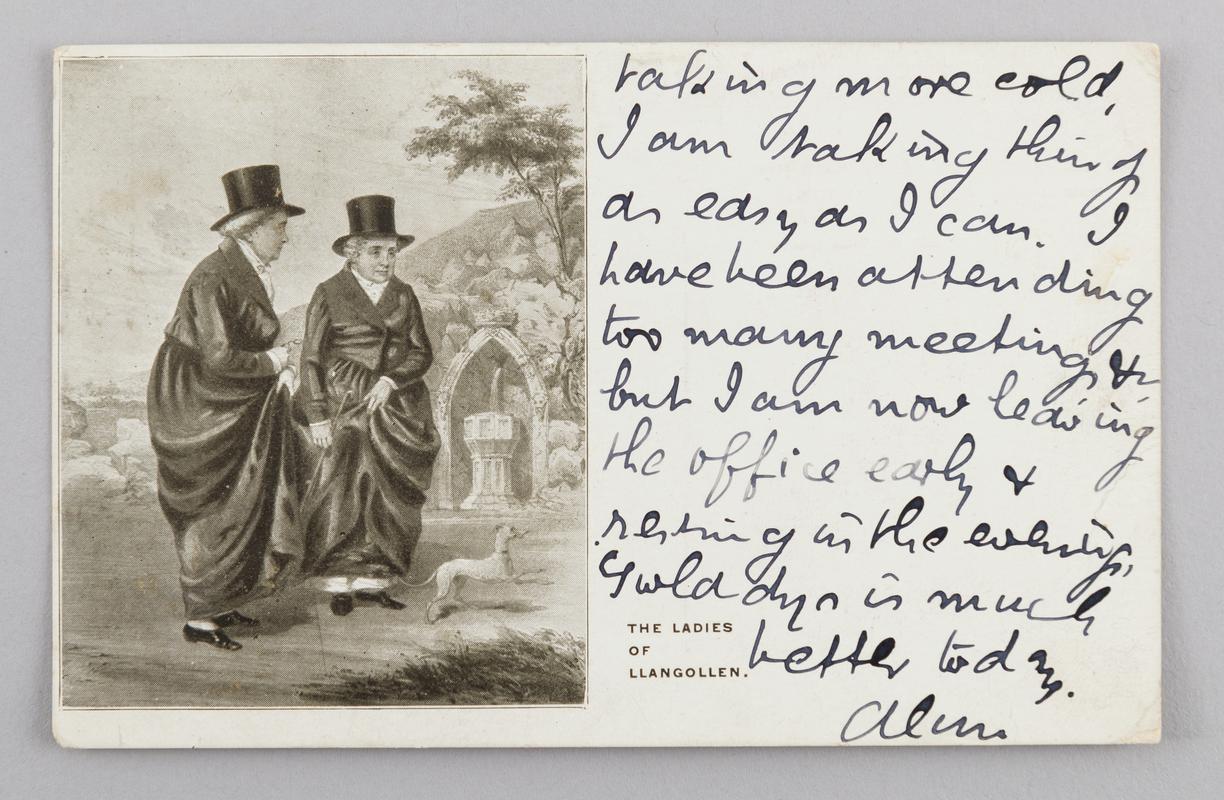 taking more cold,
I am taking things
as easy as I can. I
have been attending
too many meetings &
but I am now leaving
the office early &
resting in the evenings,
Gwladys is much
better today.
Alun.
THE LADIES
OF
LLANGOLLEN.